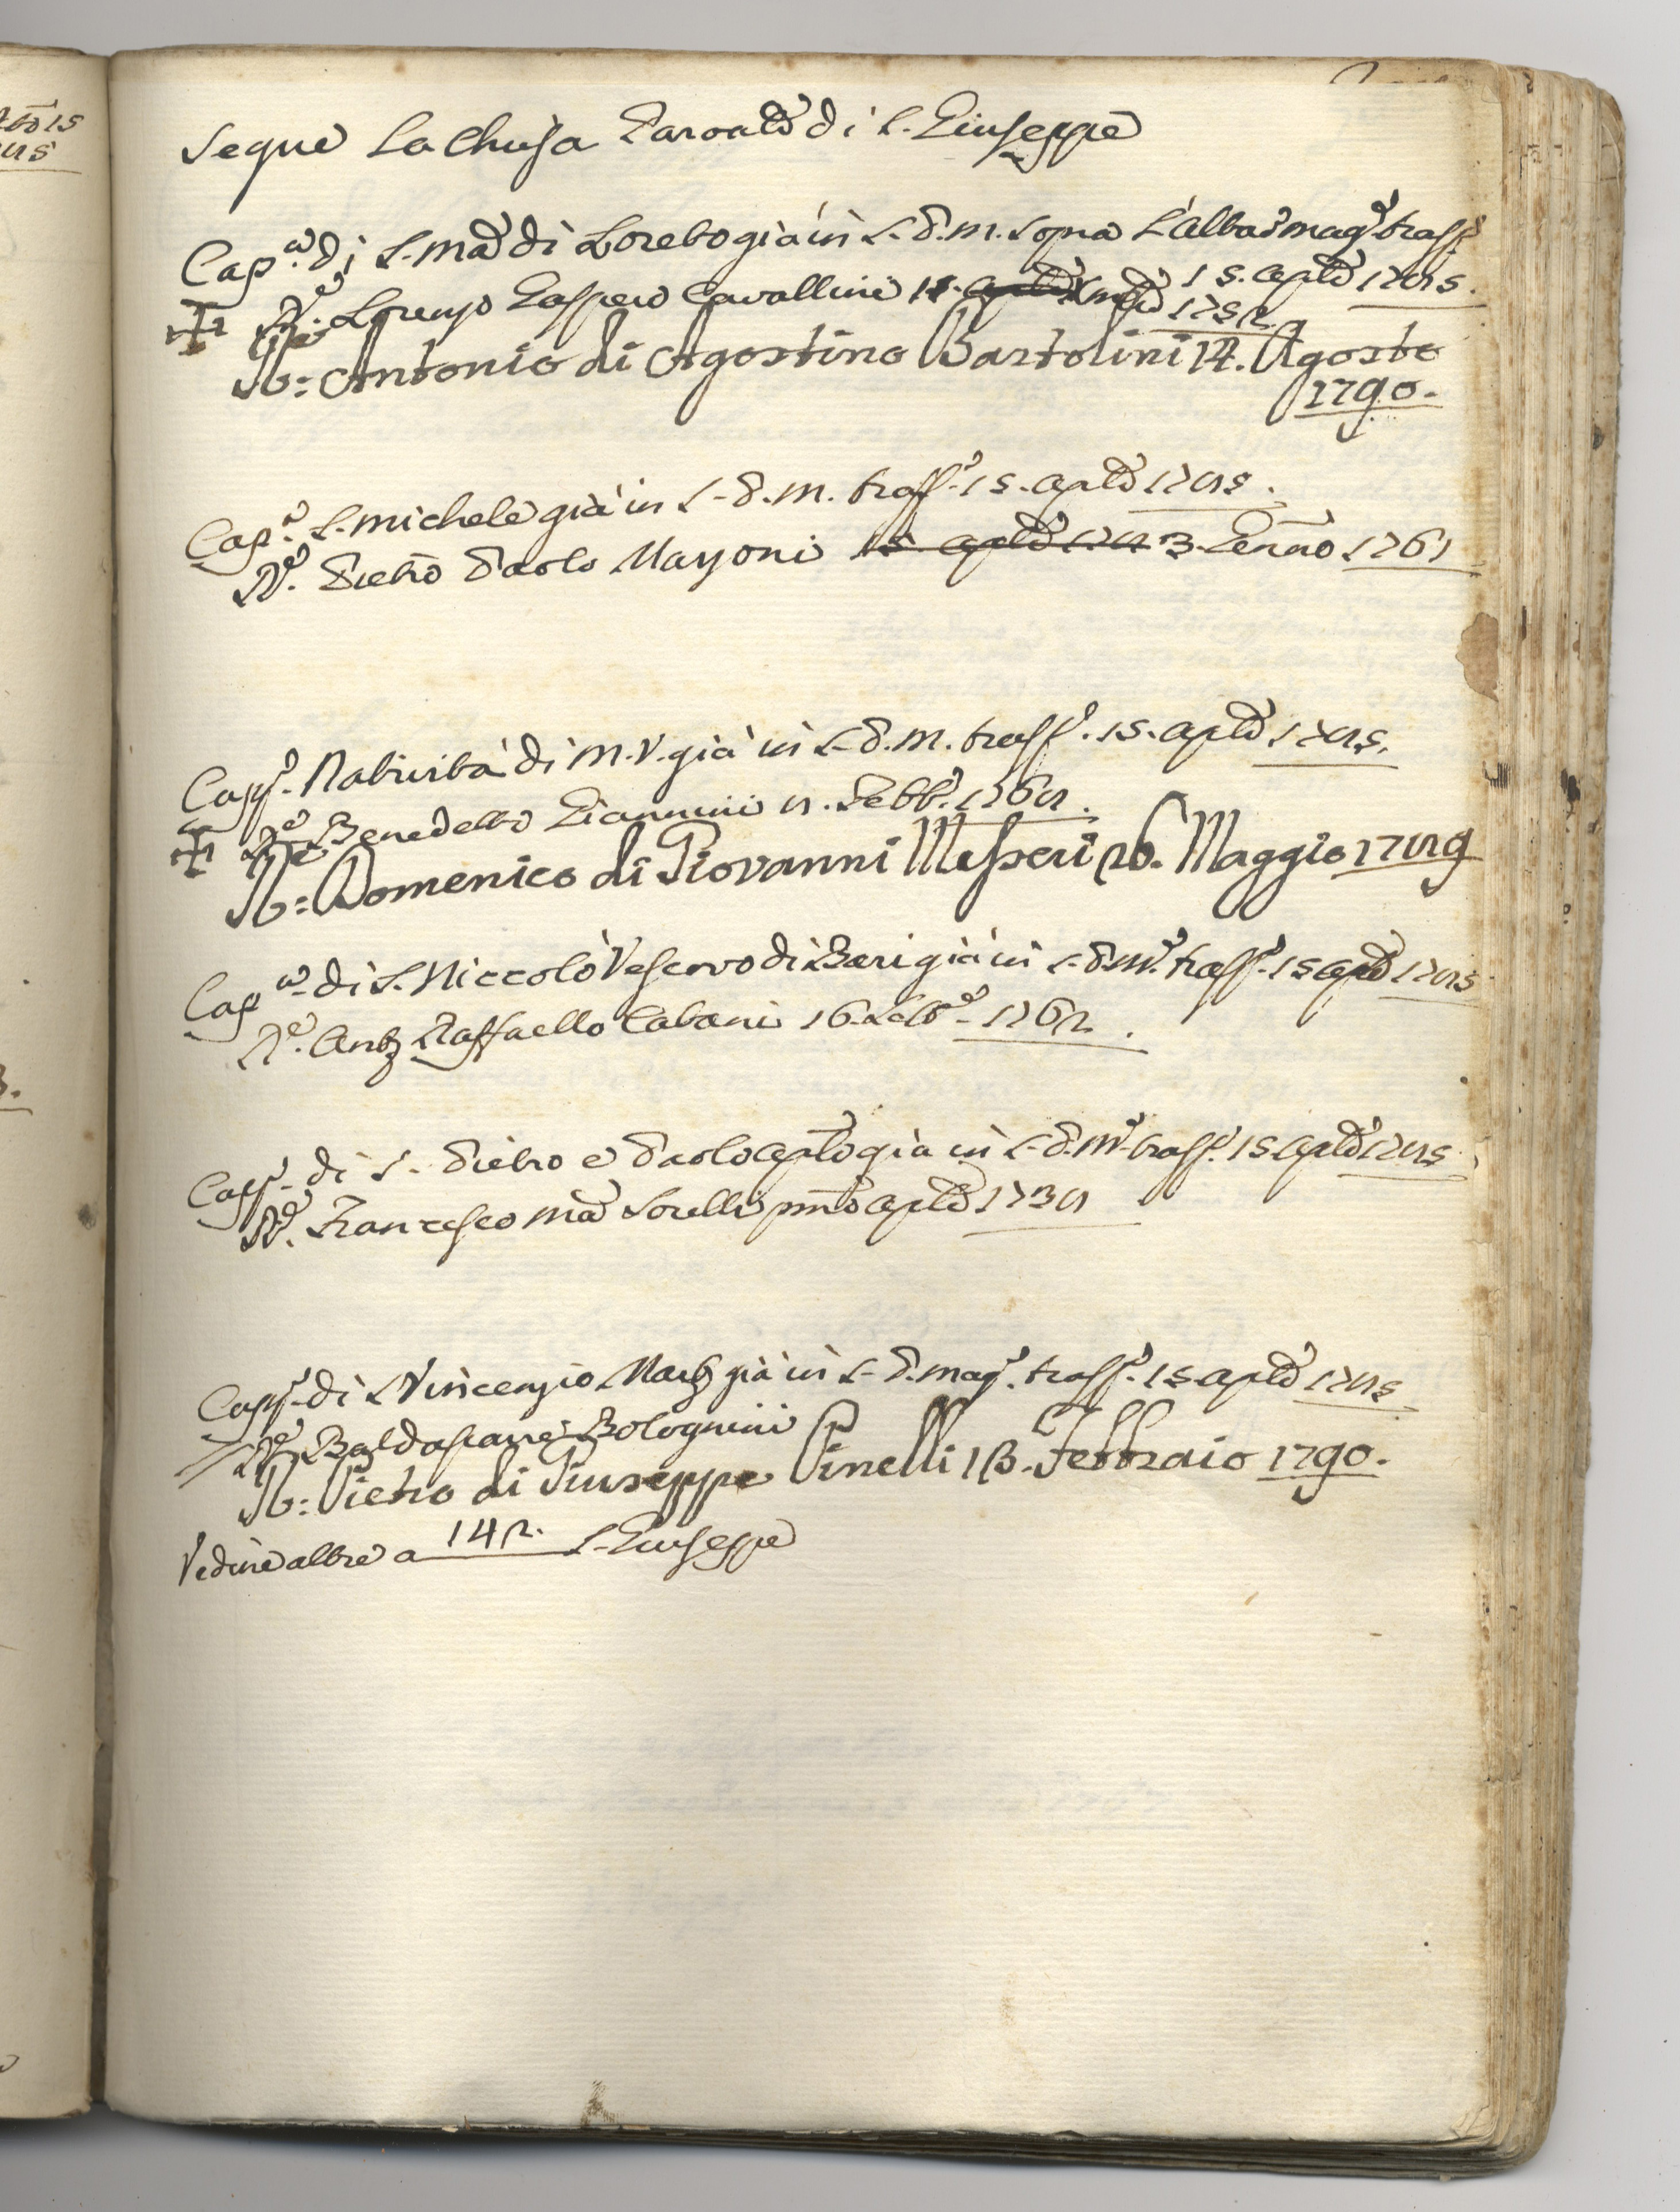 Segue La Chiesa Paroale di S. Giuseppe
Cap.a di S. Ma di Loreto già in S. P. M. sopra L'altar mag.e trasf.
15. aple 1785.
✠ R.e Lorenzo Gaspero Cavallini 1752
Rr: Antonio di Agostino Bartolini 14. Agosto
1790.
Cap.a S. Michele già in S. P. M. trasf.a 15. aple 1785.
R.e Pietro Paolo Mazzoni 15 aple 178 3. Genno 1761
Capp.a Natività di M. V. già in S. P. M. trasf.a 15. aple 1785.
✠ R.e Benedetto Giannini 8. Febb.o 1768.
Rr: Domenico di Giovanni Messeri 26. Maggio 1789
Cap.a di S. Niccolò Vescovo di Bari già in S. P. M.e trasf.a 15 aple 1785
R.e Ant.o Raffaello Catani 16. 1762.
Capp.a di S. Pietro e Paolo apli già in S. P. M.e trasf.a 15 aple 1785
R.e Francesco Ma Sorelli pmo aple 1738
Capp.a di S. Vincenzio Mar. già in S. P. mag.e trasf.a 15 aple 1785
R.e Baldassarre Bolognini
Rr: Pietro di Giuseppe Pinelli 13. Febbraio 1790.
Vedine altre a 142. S. Giuseppe